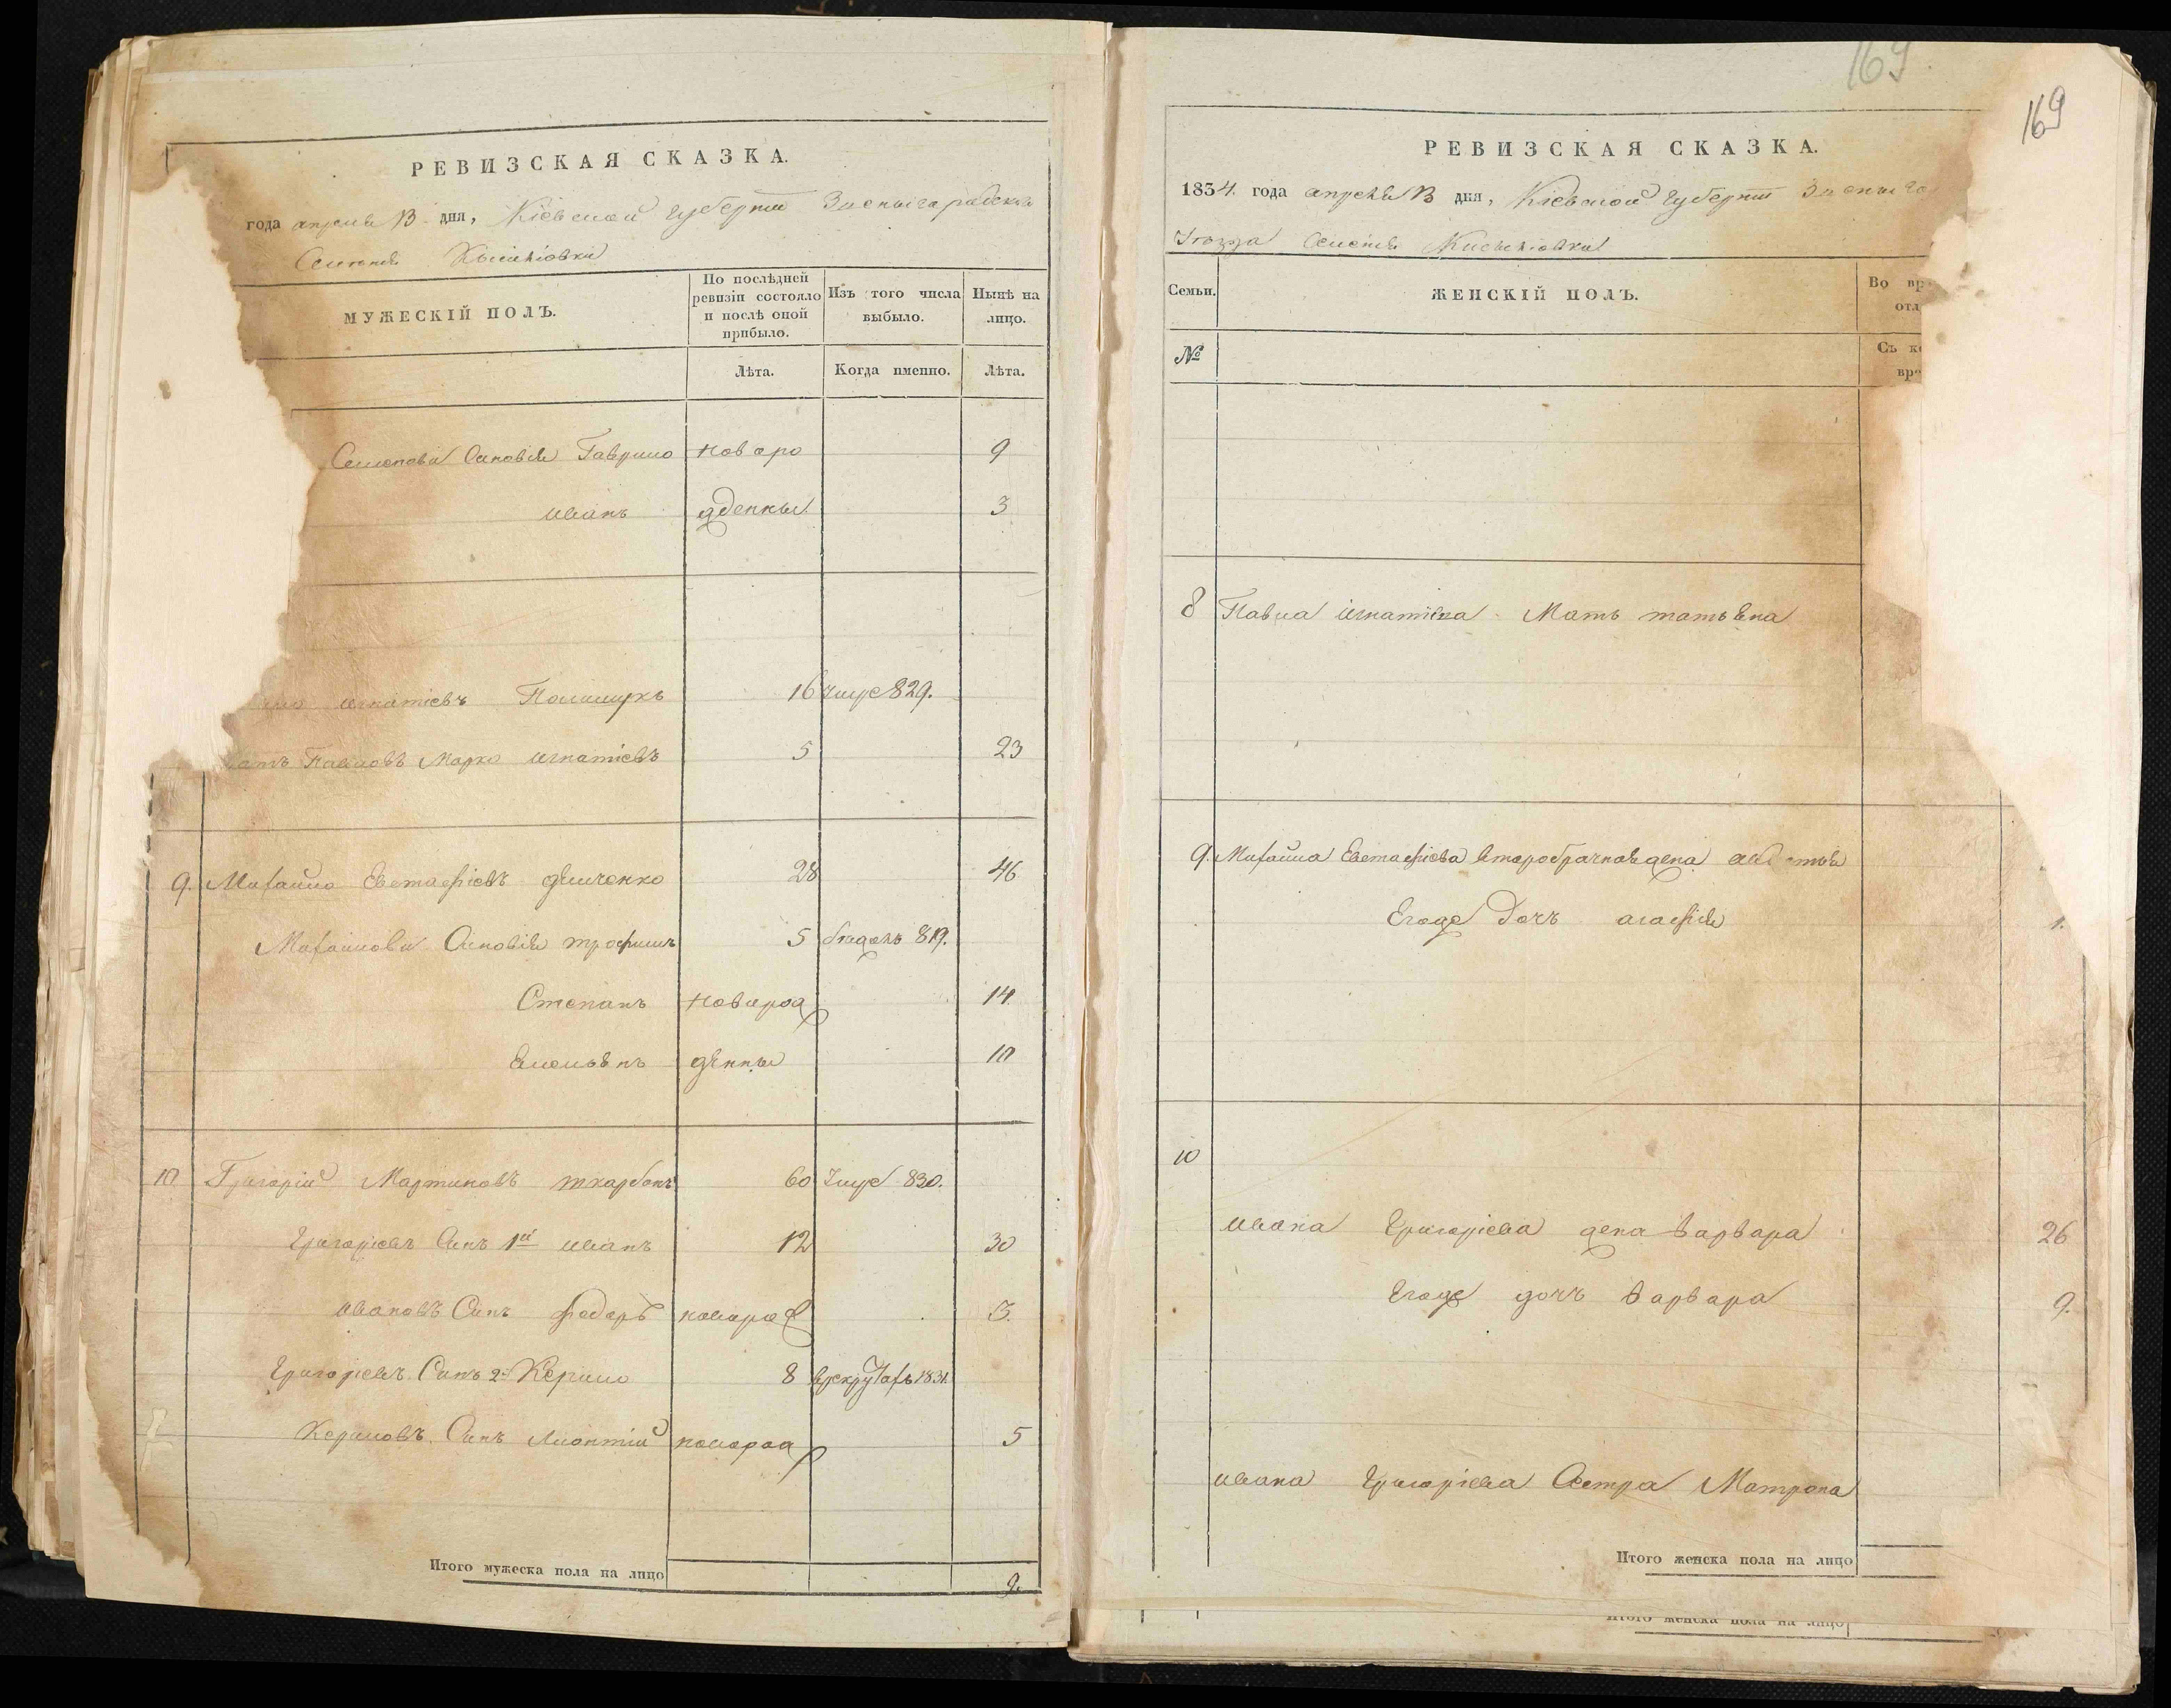 РЕВИЗСКАЯ СКАЗКА.
года апреля 13 дня, Кіевской губерніи Звенигородскаго
Селенія
МУЖЕСКІЙ ПОЛЪ.
По послѣдней ревизіи состояло и послѣ оной прибыло.
Изъ того числа выбыло.
Нынѣ на лицо.
Лѣта.
Когда именно.
Лѣта.
Семенови Синовія Гаврило новоро 9
иванъ жденны 3
игнатіевъ Полищукъ 16 Умре 829.
Павловъ Марко игнатіевъ 5 23
9. Михайло Евстафіевъ 28 46
Михайлови Синовія трофимъ 5 бѣжалъ 819.
Степанъ новорож 14
Емельянъ дѣнны 10
10 Григорій Мартиновъ 60 Умре 830.
Григоріевъ Синъ 1й иванъ 12 30
ивановъ Синъ федоръ новорож 13.
Григоріевъ Синъ 2й Кѣрило 8 врекрутахъ 1831.
Кериловъ Синъ Лионтій новорож 5
Итого мужеска пола на лицо 9.
169
169
РЕВИЗСКАЯ СКАЗКА.
1834. года апреля 13 дня, Кіевской губерніи Звениго
Уѣзда Селенія
Семьи.
ЖЕНСКІЙ ПОЛЪ.
Во вр
отл
№
Съ к
вре
8 Павла игнатіева Мать
9. Михайла Евстафіева второбрачная жена
Егоже Дочь агафія 1.
10
ивана Григоріева жена варвара 26
Егоже дочъ варвара 9.
ивана Григоріева Сестра Матрона
Итого женска пола на лицо
Итого женска пола на лицо